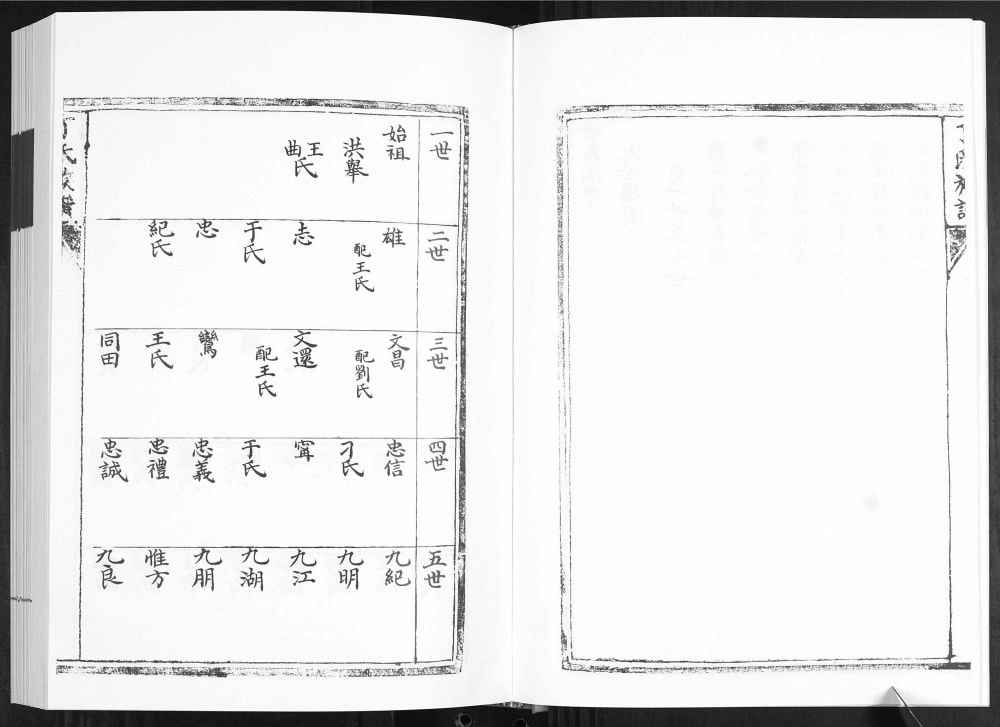 丁氏族譜
一世
始祖
洪舉
王氏
曲氏
二世
雄
配王氏
志
于氏
忠
紀氏
三世
文昌
配劉氏
文還
配王氏
鸞
王氏
同田
四世
忠信
刁氏
寗
于氏
忠義
忠禮
忠誠
五世
九紀
九明
九江
九湖
九朋
惟方
九良